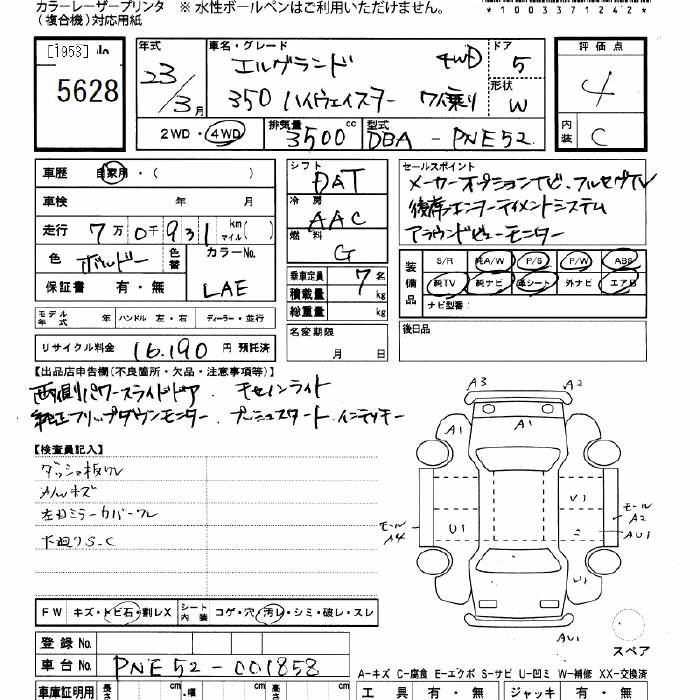 カラーレーザープリンタ ※ 水性ボールペンはご利用いただけません。
(複合機)対応用紙
*1003371242*
[1953]
5628
年式 23/3月
車名・グレード エルグランド 4WD
350 ハイウェイスター 7人乗り
ドア 5
形状 W
評価点 4
内装 C
2WD・4WD
排気量 3500cc
型式 DBA - PNE52
車歴 自家用・( )
車検 年 月
走行 7万0千931 km マイル( )
色 ボルドー 色替 カラーNo. LAE
保証書 有・無
モデル年式 年 ハンドル 左・右 ディーラー・並行
リサイクル料金 16.190円 預託済
シフト DAT
冷房 AAC
燃料 G
乗車定員 7名
積載量 kg
総重量 kg
名変期限 月 日
セールスポイント
メーカーオプションTV、フルセグTV
後席エンターテイメントシステム
アラウンドビューモニター
装備品 S/R 純A/W P/S P/W ABS
純TV 純ナビ 革シート 外ナビ エアB
ナビ型番:
後日品
【出品店申告欄(不良箇所・欠品・注意事項等)】
両側パワースライドドア、キセノンライト
純正フリップダウンモニター、プッシュスタート、インテリキー
【検査員記入】
ダッシュ板ワレ
内ハリキズ
左ドアミラーカバーワレ
下廻りS、C
A3 A2
A1 A1
モール A4
U1
U1
モール A2
AU1
AU1
スペア
FW キズ・トビ石・割レX シート内装 コゲ・穴・汚レ・シミ・破レ・スレ
登録No.
車台No. PNE52-001858
A-キズ C-腐食 E-エクボ S-サビ U-凹ミ W-補修 XX-交換済
車庫証明用 長さ cm 幅 cm 高さ cm
工具 有・無 ジャッキ 有・無